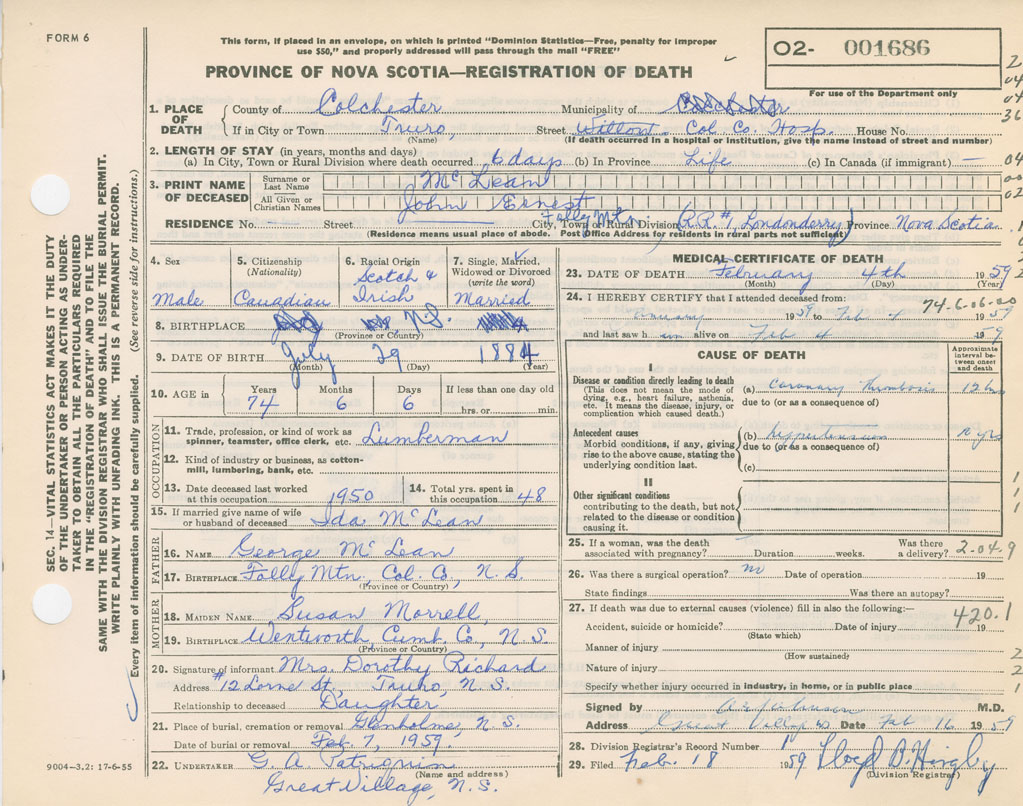 FORM 6
This form, if placed in an envelope, on which is printed "Dominion Statistics—Free, penalty for improper
use $50," and properly addressed will pass through the mail "FREE"
O2- 001686
For use of the Department only
PROVINCE OF NOVA SCOTIA—REGISTRATION OF DEATH
1. PLACE OF DEATH County of Colchester Municipality of
If in City or Town Truro, Street Col. Co. Hosp. House No.
(Name) (If death occurred in a hospital or institution, give the name instead of street and number)
2. LENGTH OF STAY (in years, months and days)
(a) In City, Town or Rural Division where death occurred 6 days (b) In Province Life (c) In Canada (if immigrant) —
3. PRINT NAME OF DECEASED Surname or Last Name McLean
All Given or Christian Names John Ernest
RESIDENCE No. Street Folly Mtn City, Town or Rural Division (R.R. #1, Londonderry) Province Nova Scotia
(Residence means usual place of abode. Post Office Address for residents in rural parts not sufficient)
4. Sex Male
5. Citizenship (Nationality) Canadian
6. Racial Origin Scotch & Irish
7. Single, Married, Widowed or Divorced (write the word) Married
8. BIRTHPLACE N.S.
(Province or Country)
9. DATE OF BIRTH July 29 1884
(Month) (Day) (Year)
10. AGE in Years 74 Months 6 Days 6 If less than one day old hrs. or min.
OCCUPATION
11. Trade, profession, or kind of work as spinner, teamster, office clerk, etc. Lumberman
12. Kind of industry or business, as cotton-mill, lumbering, bank, etc.
13. Date deceased last worked at this occupation 1950 14. Total yrs. spent in this occupation 48
15. If married give name of wife or husband of deceased Ida McLean
FATHER
16. NAME George McLean
17. BIRTHPLACE Folly Mtn, Col. Co., N.S.
(Province or Country)
MOTHER
18. MAIDEN NAME Susan Morrell,
19. BIRTHPLACE Wentworth Cumb. Co., N.S.
(Province or Country)
20. Signature of informant Mrs. Dorothy Richard
Address #12 Lorne St., Truro, N.S.
Relationship to deceased Daughter
21. Place of burial, cremation or removal Glenholme, N.S.
Date of burial or removal Feb. 7, 1959.
22. UNDERTAKER G. A.
(Name and address)
Great Village, N.S.
MEDICAL CERTIFICATE OF DEATH
23. DATE OF DEATH February 4th 1959
(Month) (Day) (Year)
24. I HEREBY CERTIFY that I attended deceased from: 74-6-06-00
1959 to Feb 4 1959
and last saw h im alive on Feb 4 59
CAUSE OF DEATH
Approximate interval between onset and death
I
Disease or condition directly leading to death
(This does not mean the mode of dying, e.g., heart failure, asthenia, etc. It means the disease, injury, or complication which caused death.)
(a) Coronary Thrombosis 12 hrs
due to (or as a consequence of)
Antecedent causes
Morbid conditions, if any, giving rise to the above cause, stating the underlying condition last.
(b) Hypertension 10 yrs
due to (or as a consequence of)
(c)
II
Other significant conditions
contributing to the death, but not related to the disease or condition causing it.
25. If a woman, was the death associated with pregnancy? Duration weeks. Was there a delivery? 2-04-9
26. Was there a surgical operation? no Date of operation 19
State findings Was there an autopsy?
27. If death was due to external causes (violence) fill in also the following:— 420.1
Accident, suicide or homicide? Date of injury 19
(State which)
Manner of injury
(How sustained)
Nature of injury
Specify whether injury occurred in industry, in home, or in public place
Signed by M.D.
Address Great Village NS Date Feb 16 1959
28. Division Registrar's Record Number 1
29. Filed Feb. 18 1959 Lloyd B.
(Division Registrar)
SEC. 14—VITAL STATISTICS ACT MAKES IT THE DUTY
OF THE UNDERTAKER OR PERSON ACTING AS UNDER-
TAKER TO OBTAIN ALL THE PARTICULARS REQUIRED
IN THE "REGISTRATION OF DEATH" AND TO FILE THE
SAME WITH THE DIVISION REGISTRAR WHO SHALL ISSUE THE BURIAL PERMIT.
WRITE PLAINLY WITH UNFADING INK. THIS IS A PERMANENT RECORD.
Every item of information should be carefully supplied. (See reverse side for instructions.)
9004—3.2: 17-6-55